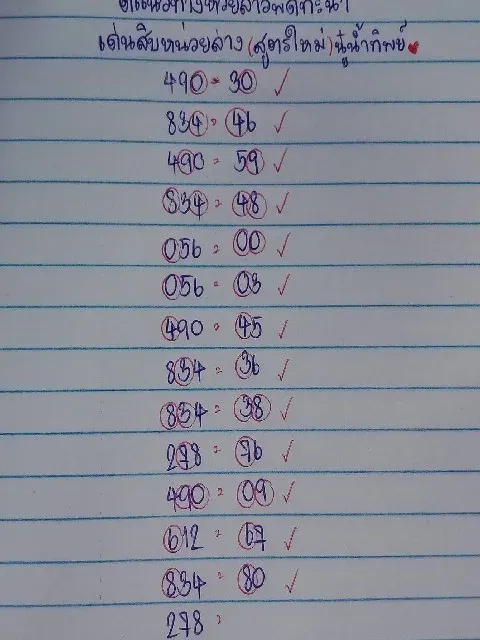 เด่นสิบหน่วยล่าง(สูตรใหม่)นู๋น้ำทิพย์
490 = 30 ✓
834 = 46 ✓
490 = 59 ✓
834 = 48 ✓
056 = 00 ✓
056 = 03 ✓
490 = 45 ✓
834 = 36 ✓
834 = 38 ✓
278 = 76 ✓
490 = 09 ✓
612 = 67 ✓
834 = 80 ✓
278 =